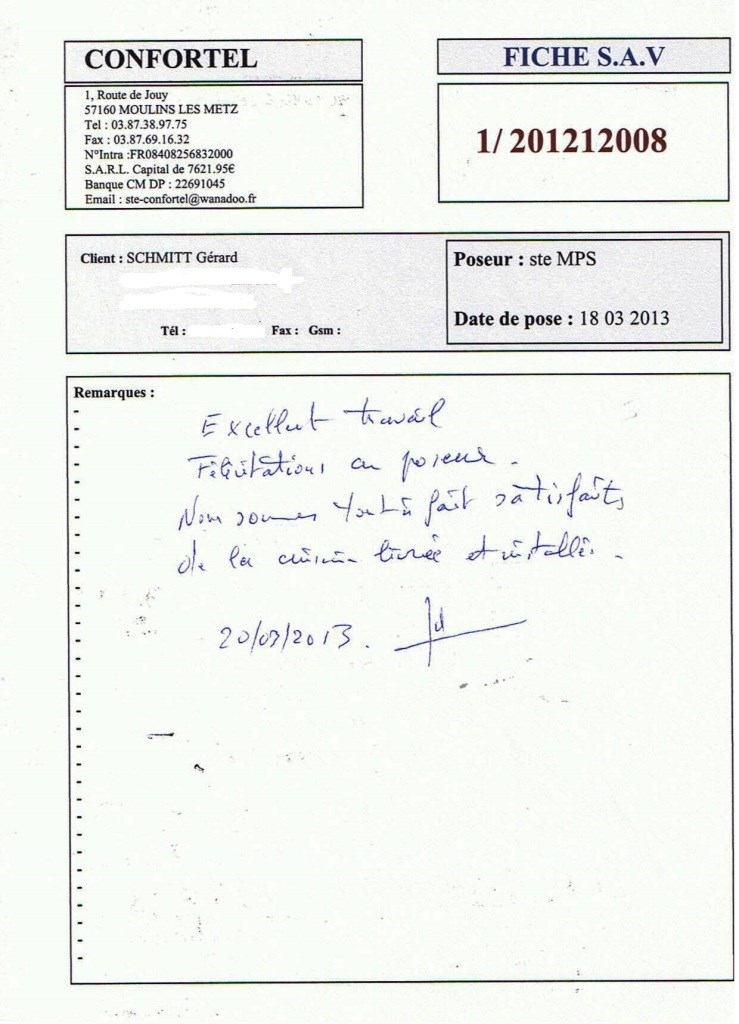 CONFORTEL
1, Route de Jouy
57160 MOULINS LES METZ
Tel : 03.87.38.97.75
Fax : 03.87.69.16.32
N°Intra :FR08408256832000
S.A.R.L. Capital de 7621.95€
Banque CM DP : 22691045
Email : ste-confortel@wanadoo.fr
FICHE S.A.V
1/ 201212008
Client : SCHMITT Gérard
Tél : Fax : Gsm :
Poseur : ste MPS
Date de pose : 18 03 2013
Remarques :
Excellent travail
Félicitations au poseur.
Nous sommes tout à fait satisfaits
de la cuisine livrée et installée.
20/03/2013.